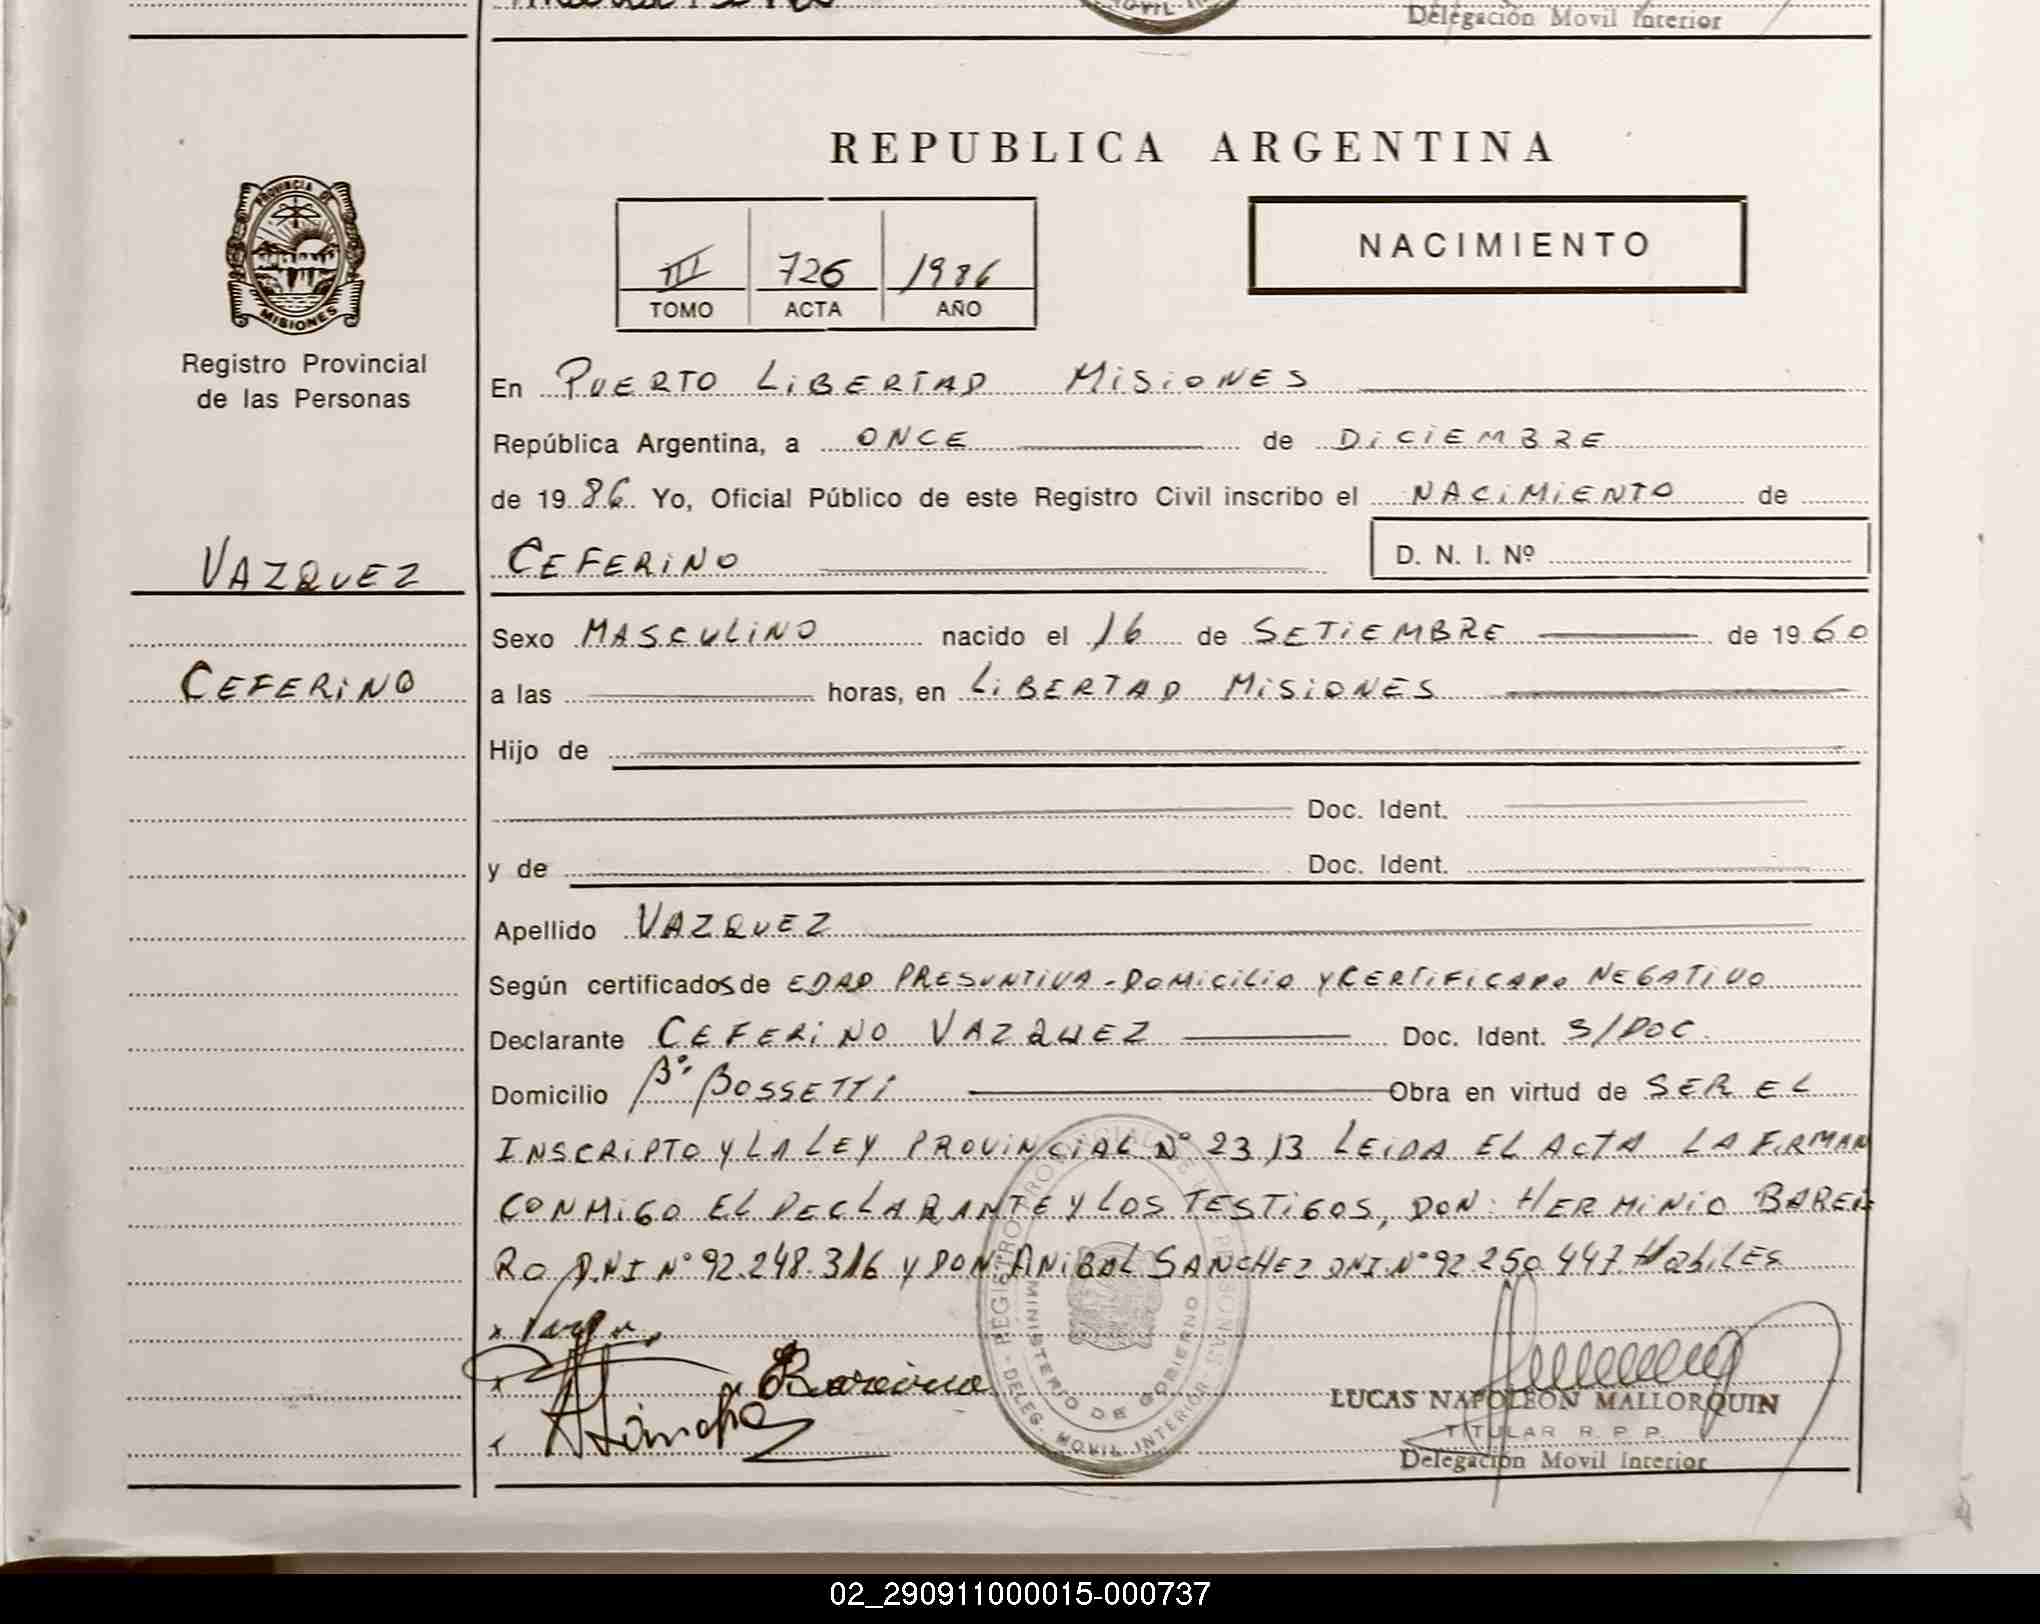 Delegación Movil Interior
REPUBLICA ARGENTINA
PROVINCIA DE
MISIONES
Registro Provincial
de las Personas
III 726 1986
TOMO ACTA AÑO
NACIMIENTO
En PUERTO LIBERTAD MISIONES
República Argentina, a ONCE de DICIEMBRE
de 1986 Yo, Oficial Público de este Registro Civil inscribo el NACIMIENTO de
VAZQUEZ
CEFERINO
D. N. I. Nº
Sexo MASCULINO nacido el 16 de SETIEMBRE de 1960
CEFERINO
a las horas, en LIBERTAD MISIONES
Hijo de
Doc. Ident.
y de Doc. Ident.
Apellido VAZQUEZ
Según certificados de EDAD PRESUNTIVA - DOMICILIO Y CERTIFICADO NEGATIVO
Declarante CEFERINO VAZQUEZ Doc. Ident. S/DOC.
Domicilio Bº BOSSETTI Obra en virtud de SER EL
INSCRIPTO Y LA LEY PROVINCIAL Nº 2313 LEIDA EL ACTA LA FIRMAN
CONMIGO EL DECLARANTE Y LOS TESTIGOS, DON: HERMINIO BAREI
RO DNI Nº 92.248.316 Y DON ANIBAL SANCHEZ DNI Nº 92.250.447 HABILES
REGISTRO PROVINCIAL DE LAS PERSONAS
MINISTERIO DE GOBIERNO
- DELEG. MOVIL INTERIOR -
LUCAS NAPOLEON MALLORQUIN
TITULAR R. P. P.
Delegación Movil Interior
02_290911000015-000737